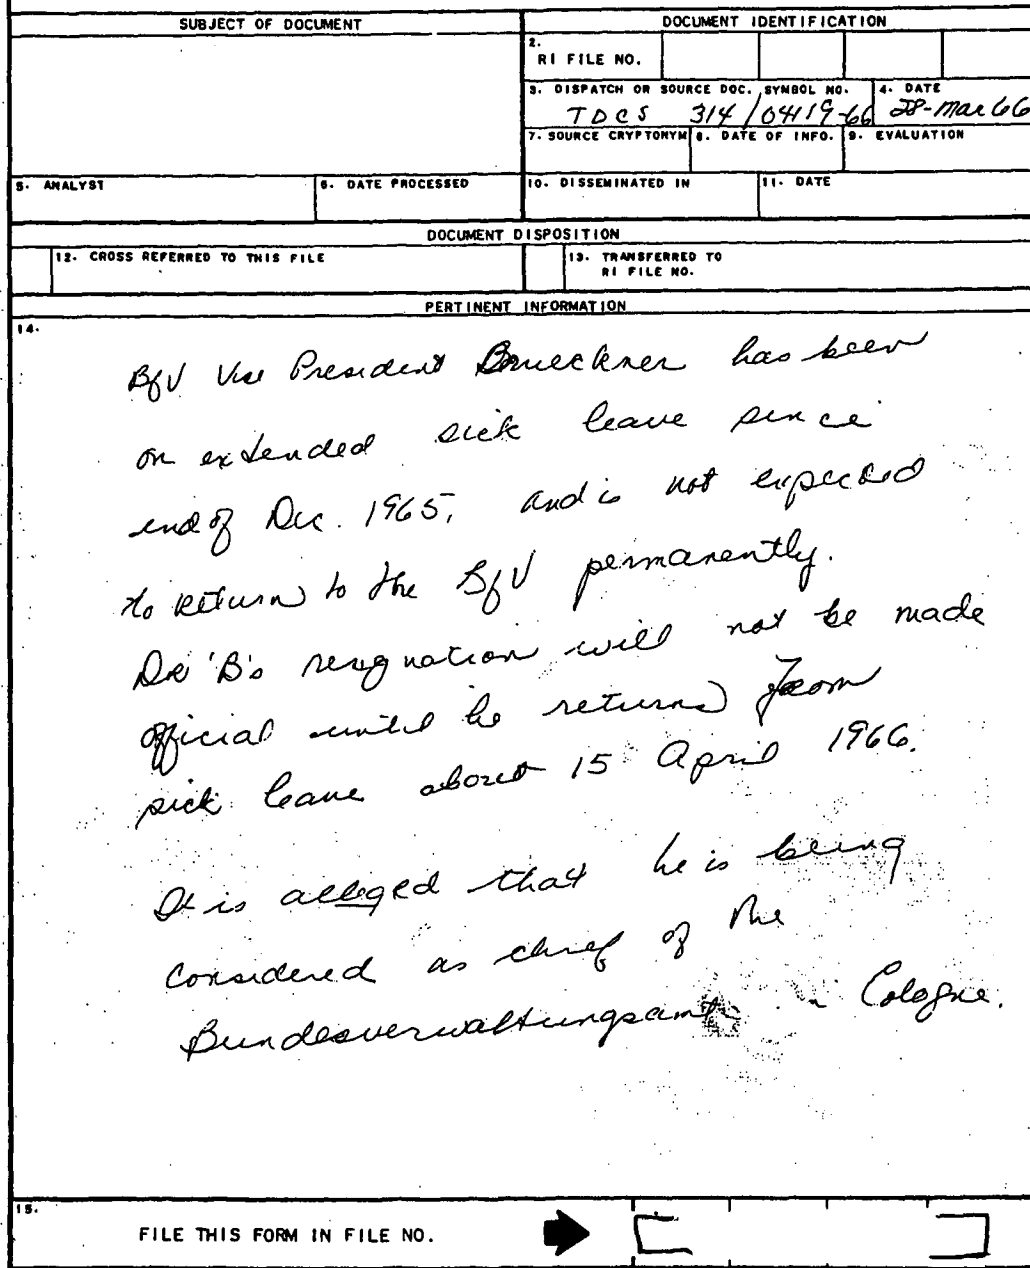 SUBJECT OF DOCUMENT
DOCUMENT IDENTIFICATION
2.
RI FILE NO.
3. DISPATCH OR SOURCE DOC. SYMBOL NO.
TDCS 314/04119-66
4. DATE
28-Mar 66
7. SOURCE CRYPTONYM
8. DATE OF INFO.
9. EVALUATION
5. ANALYST
6. DATE PROCESSED
10. DISSEMINATED IN
11. DATE
DOCUMENT DISPOSITION
12. CROSS REFERRED TO THIS FILE
13. TRANSFERRED TO
RI FILE NO.
PERTINENT INFORMATION
14.
BfV Vice President Brueckner has been
on extended sick leave since
end of Dec. 1965, and is not expected
to return to the BfV permanently.
DR 'B's resignation will not be made
official until he returns from
sick leave about 15 April 1966.
It is alleged that he is being
considered as chief of the
Bundesverwaltungsamt in Cologne.
15.
FILE THIS FORM IN FILE NO.